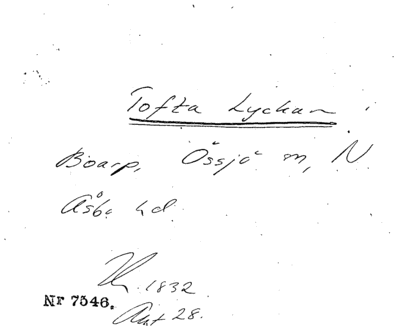 Tofta Lyckan
Boarp, Össjö m, N
Åsbo hd.
1832
Nr 7546.
Akt 28.